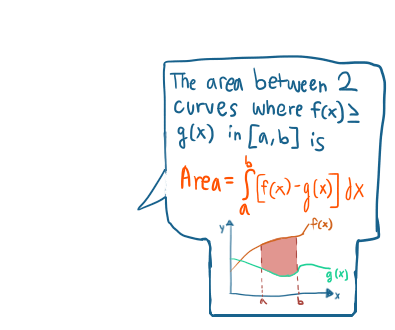 The area between 2
curves where f(x) ≥
g(x) in [a,b] is
Area = ∫_a^b [f(x) - g(x)] dx
y
f(x)
g(x)
a b x